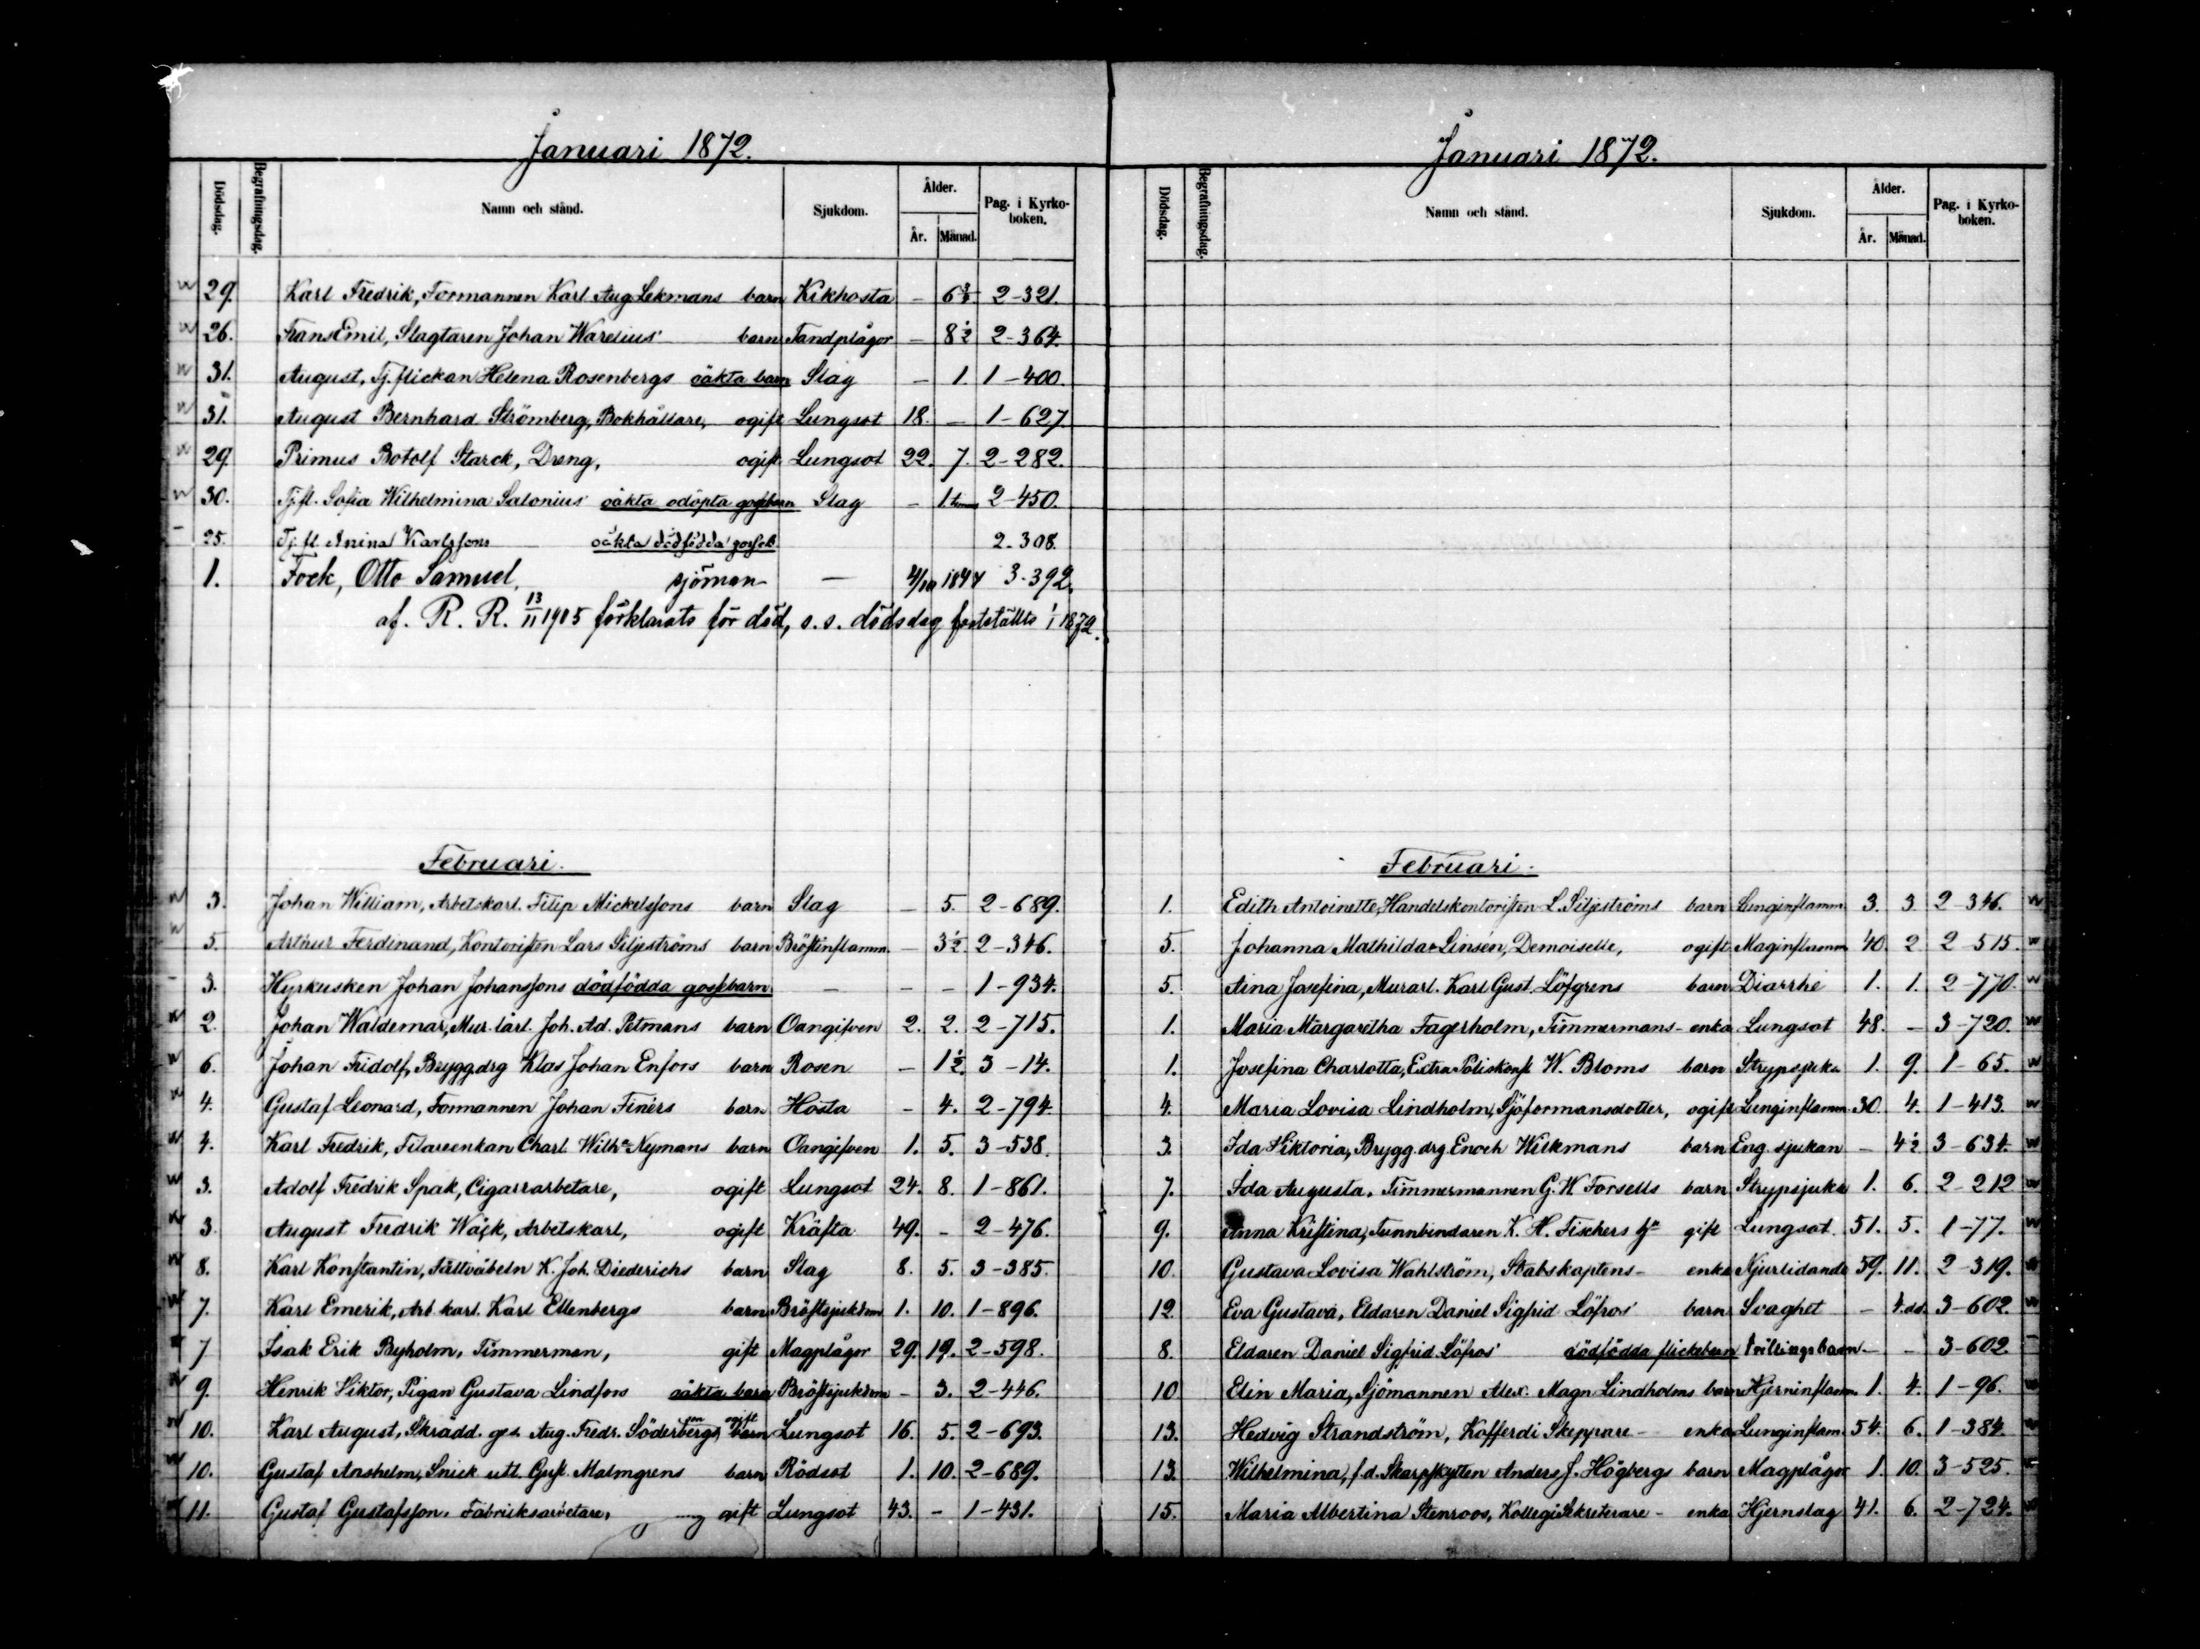 Januari 1872.
Dödsdag. Begrafningsdag. Namn och stånd. Sjukdom. Ålder. År. Månad. Pag. i Kyrkoboken.
29. Karl Fredrik, Formannen Karl Aug Lekmans barn Kikhosta – 6 2-321.
26. Frans Emil, Slagtaren Johan Warelius' barn Tandplågor – 8½ 2-364.
31. August, Tj.flickan Helena Rosenbergs oäkta barn Slag – 1. 1-400.
31. August Bernhard Strömberg, Bokhållare, ogift Lungsot 18. – 1-627
29. Primus Botolf Starck, Dreng, ogift Lungsot 22. 7. 2-282.
30. Tj.fl. Sofia Wilhelmina Salonius' oäkta odöpta gossebarn Slag – 1 timme 2-450.
25. Tj. fl. Anina Karlssons oäkta dödfödda gosseb. 2.308.
1. Fock, Otto Samuel, sjöman – 4/10 1844 3-392.
af. R. R. 13/11 1905 förklarats för död, s.s. dödsdag fastställts 1/1 1872.
Februari.
3. Johan William, Arbetskarl. Filip Mickelssons barn Slag – 5. 2-689.
5. Arthur Ferdinand, Kontoristen Lars Siljeströms barn Bröstinflamm. – 3½ 2-346.
3. Hyrkusken Johan Johanssons dödfödda gossebarn – – – 1-934.
2. Johan Waldemar, Mur.lärl. Joh. Ad. Petmans barn Oangifven 2. 2. 2-715.
6. Johan Fridolf, Bryggdrg Klas Johan Enfors barn Rosen – 1½ 3-14.
4. Gustaf Leonard, Formannen Johan Finérs barn Hosta – 4. 2-794.
4. Karl Fredrik, Filareenkan Charl. Wilha Nymans barn Oangifven 1. 5. 3-538.
3. Adolf Fredrik Spak, Cigarrarbetare, ogift Lungsot 24. 8. 1-861.
3. August Fredrik Wäck, Arbetskarl, ogift Kräfta 49. – 2-476.
8. Karl Konstantin, Fältväbeln K. Joh. Diederichs barn Slag 8. 5. 3-385.
7. Karl Emerik, Arb.karl. Karl Ellenbergs barn Bröstsjukdom 1. 10. 1-896.
7 Isak Erik Byholm, Timmerman, gift Magplågor 29. 19. 2-598.
9. Henrik Viktor, Pigan Gustava Lindfors oäkta barn Bröstsjukdom – 3. 2-446.
10. Karl August, Skrädd. ges. Aug. Fredr. Söderbergs son ogift barn Lungsot 16. 5. 2-693.
10. Gustaf Anshelm, Snick. utl. Gust. Malmgrens barn Rödsot 1. 10. 2-689.
11. Gustaf Gustafsson, Fabriksarbetare, gift Lungsot 43. – 1-431.
Januari 1872.
Dödsdag. Begrafningsdag. Namn och stånd. Sjukdom. Ålder. År. Månad. Pag. i Kyrkoboken.
Februari.
1. Edith Antoinette, Handelskontoristen L. Siljeströms barn Lunginflamm. 3. 3. 2-346.
5. Johanna Mathilda Linsén, Demoiselle, ogift Maginflamm. 40. 2 2-515.
5. Aina Josefina, Murarl. Karl Gust. Löfgrens barn Diarrhé 1. 1. 2-770.
1. Maria Margaretha Fagerholm, Timmermans- enka Lungsot 48. – 3-720.
1. Josefina Charlotta, Extra Poliskonst. W. Bloms barn Strypsjuka 1. 9. 1-65.
4. Maria Lovisa Lindholm, Sjöformansdotter, ogift Lunginflamm. 30. 4. 1-413.
3. Ida Viktoria, Brygg.drg Enoch Wilkmans barn Eng. sjukan – 4½ 3-634.
7. Ida Augusta, Timmermannen G. W. Forsells barn Strypsjuka 1. 6. 2-212
9. Anna Kristina, Tunnbindaren K. H. Fischers h gift Lungsot. 51. 5. 1-77.
10. Gustava Lovisa Wahlström, Stabskaptens- enka Njurlidande 59. 11. 2-319.
12. Eva Gustava, Eldaren Daniel Sigfrid Löfros' barn Svaghet – 4.dd. 3-602
8. Eldaren Daniel Sigfrid Löfros' dödfödda flickebarn tvillingsbarn – – 3-602.
10. Elin Maria, Sjömannen Alex. Magn. Lindholms barn Hjerninflamm. 1. 4. 1-96.
13. Hedvig Strandström, Kofferdi Skeppare- enka Lunginflam. 54. 6. 1-384.
13. Wilhelmina, f.d. Skarpskytten Anders J. Högbergs barn Magplågor 1. 10. 3-525.
15. Maria Albertina Stenroos, KollegiSekreterare- enka Hjernslag 41. 6. 2-724.